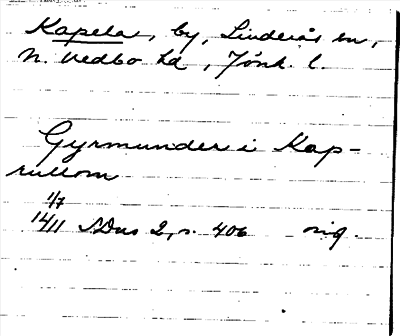 Kapela, by, Linderås sn,
N. Vedbo hd, Jönk. l.
Gyrmunder i Kap-
rullom
1/7
1411 SDns 2, s. 406 orig.